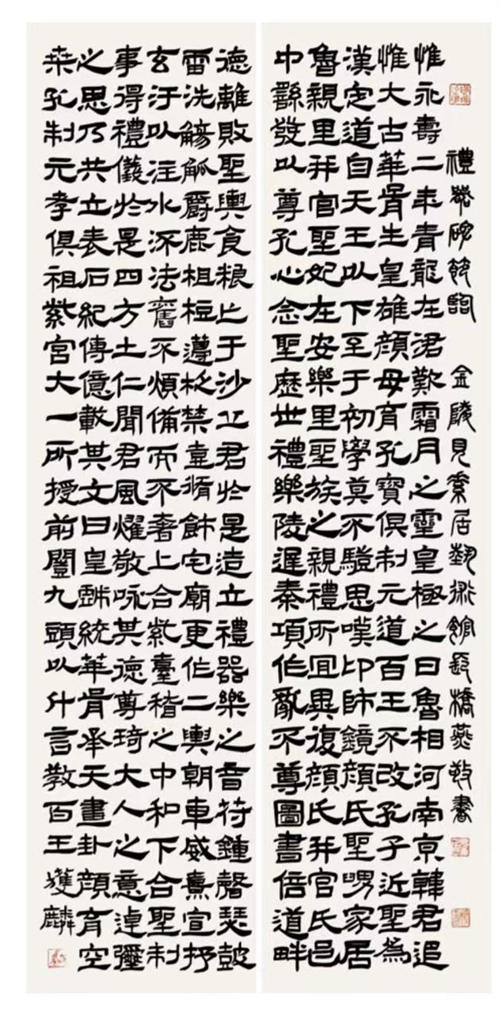 禮器碑節臨 金陵見素居藝術館長橋燕敬書
惟永壽二年青龍在涒歎霜月之靈皇極之日魯相河南京韓君追
惟大古華胥生皇雄顏母育孔寶俱制元道百王不改孔子近聖為
漢定道自天王以下至于初學莫不驥思嘆卬師鏡顏氏聖舅家居
魯親里并官聖妃在安樂里聖族之親禮所宜異復顏氏并官氏邑
中繇發以尊孔心念聖歷世禮樂陵遲秦項作亂不尊圖書倍道畔
德離敗聖輿食糧亡于沙丘君於是造立禮器樂之音符鍾磬瑟鼓
雷洗觴觚爵鹿柤梪籩柉禁壺脩飾宅廟更作二輿朝車威熹宣抒
玄汙以注水流法舊不煩備而不奢上合紫臺稽之中和下合聖制
事得禮儀於是四方士仁聞君風燿敬咏其德尊琦大人之意逴彌
之思乃共立表石紀傳億載其文曰皇戲統華胥承天畫卦顏育空
桑孔制元孝俱祖紫宮大一所授前闓九頭以什言教百王獲麟